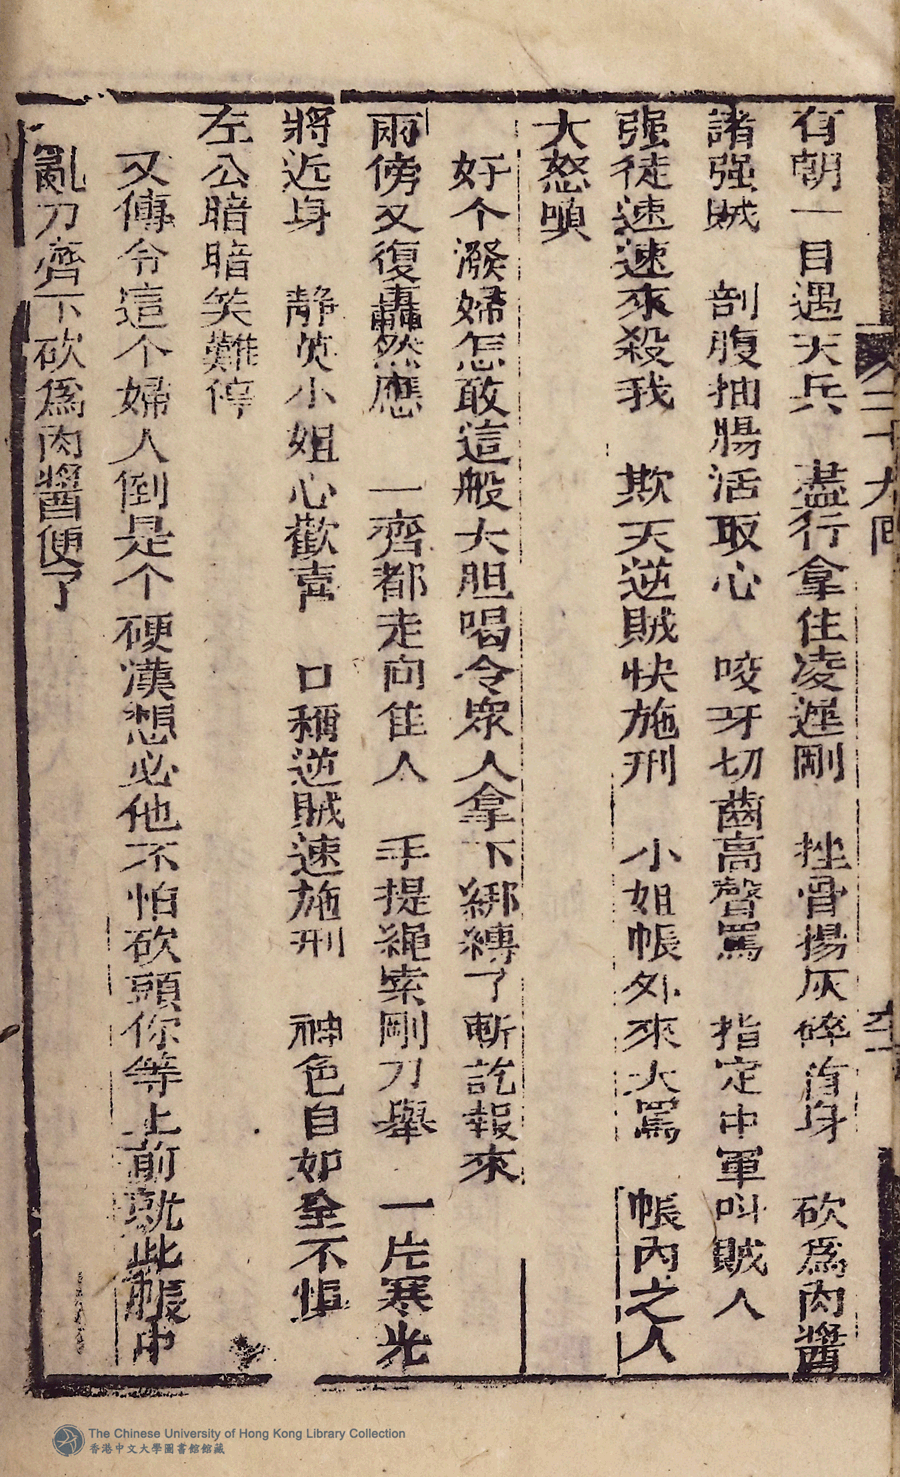 卷二十九回
有朝一目遇天兵　盡行拿住凌遲剛　挫骨揚灰碎肯身　砍為肉醬
諸强賊　剖腹抽腸活取心　咬牙切齒高聲罵　指定中軍叫賊人
强徒速速來殺我　欺天逆賊快施刑　小姐帳外來大罵　帳內之人
大怒嗔
好个潑婦怎敢這般大胆喝令眾人拿下綁縛了斬訖報來
兩傍又復轟然應　一齊都走向佳人　手提繩索剛刀舉　一片寒光
將近身　靜英小姐心歡喜　口稱逆賊速施刑　神色自如全不惧
左公暗暗笑難停
又傳令這个婦人倒是个硬漢想必他不怕砍頭你等上前就此帳中
亂刀齊下砍為肉醬便了
The Chinese University of Hong Kong Library Collection
香港中文大學圖書館館藏